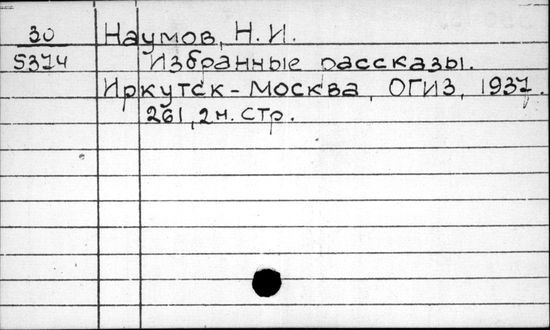 30 Наумов, Н. И.
5374 Избранные рассказы.
Иркутск-Москва, ОГИЗ, 1937.
261, 2 н. стр.